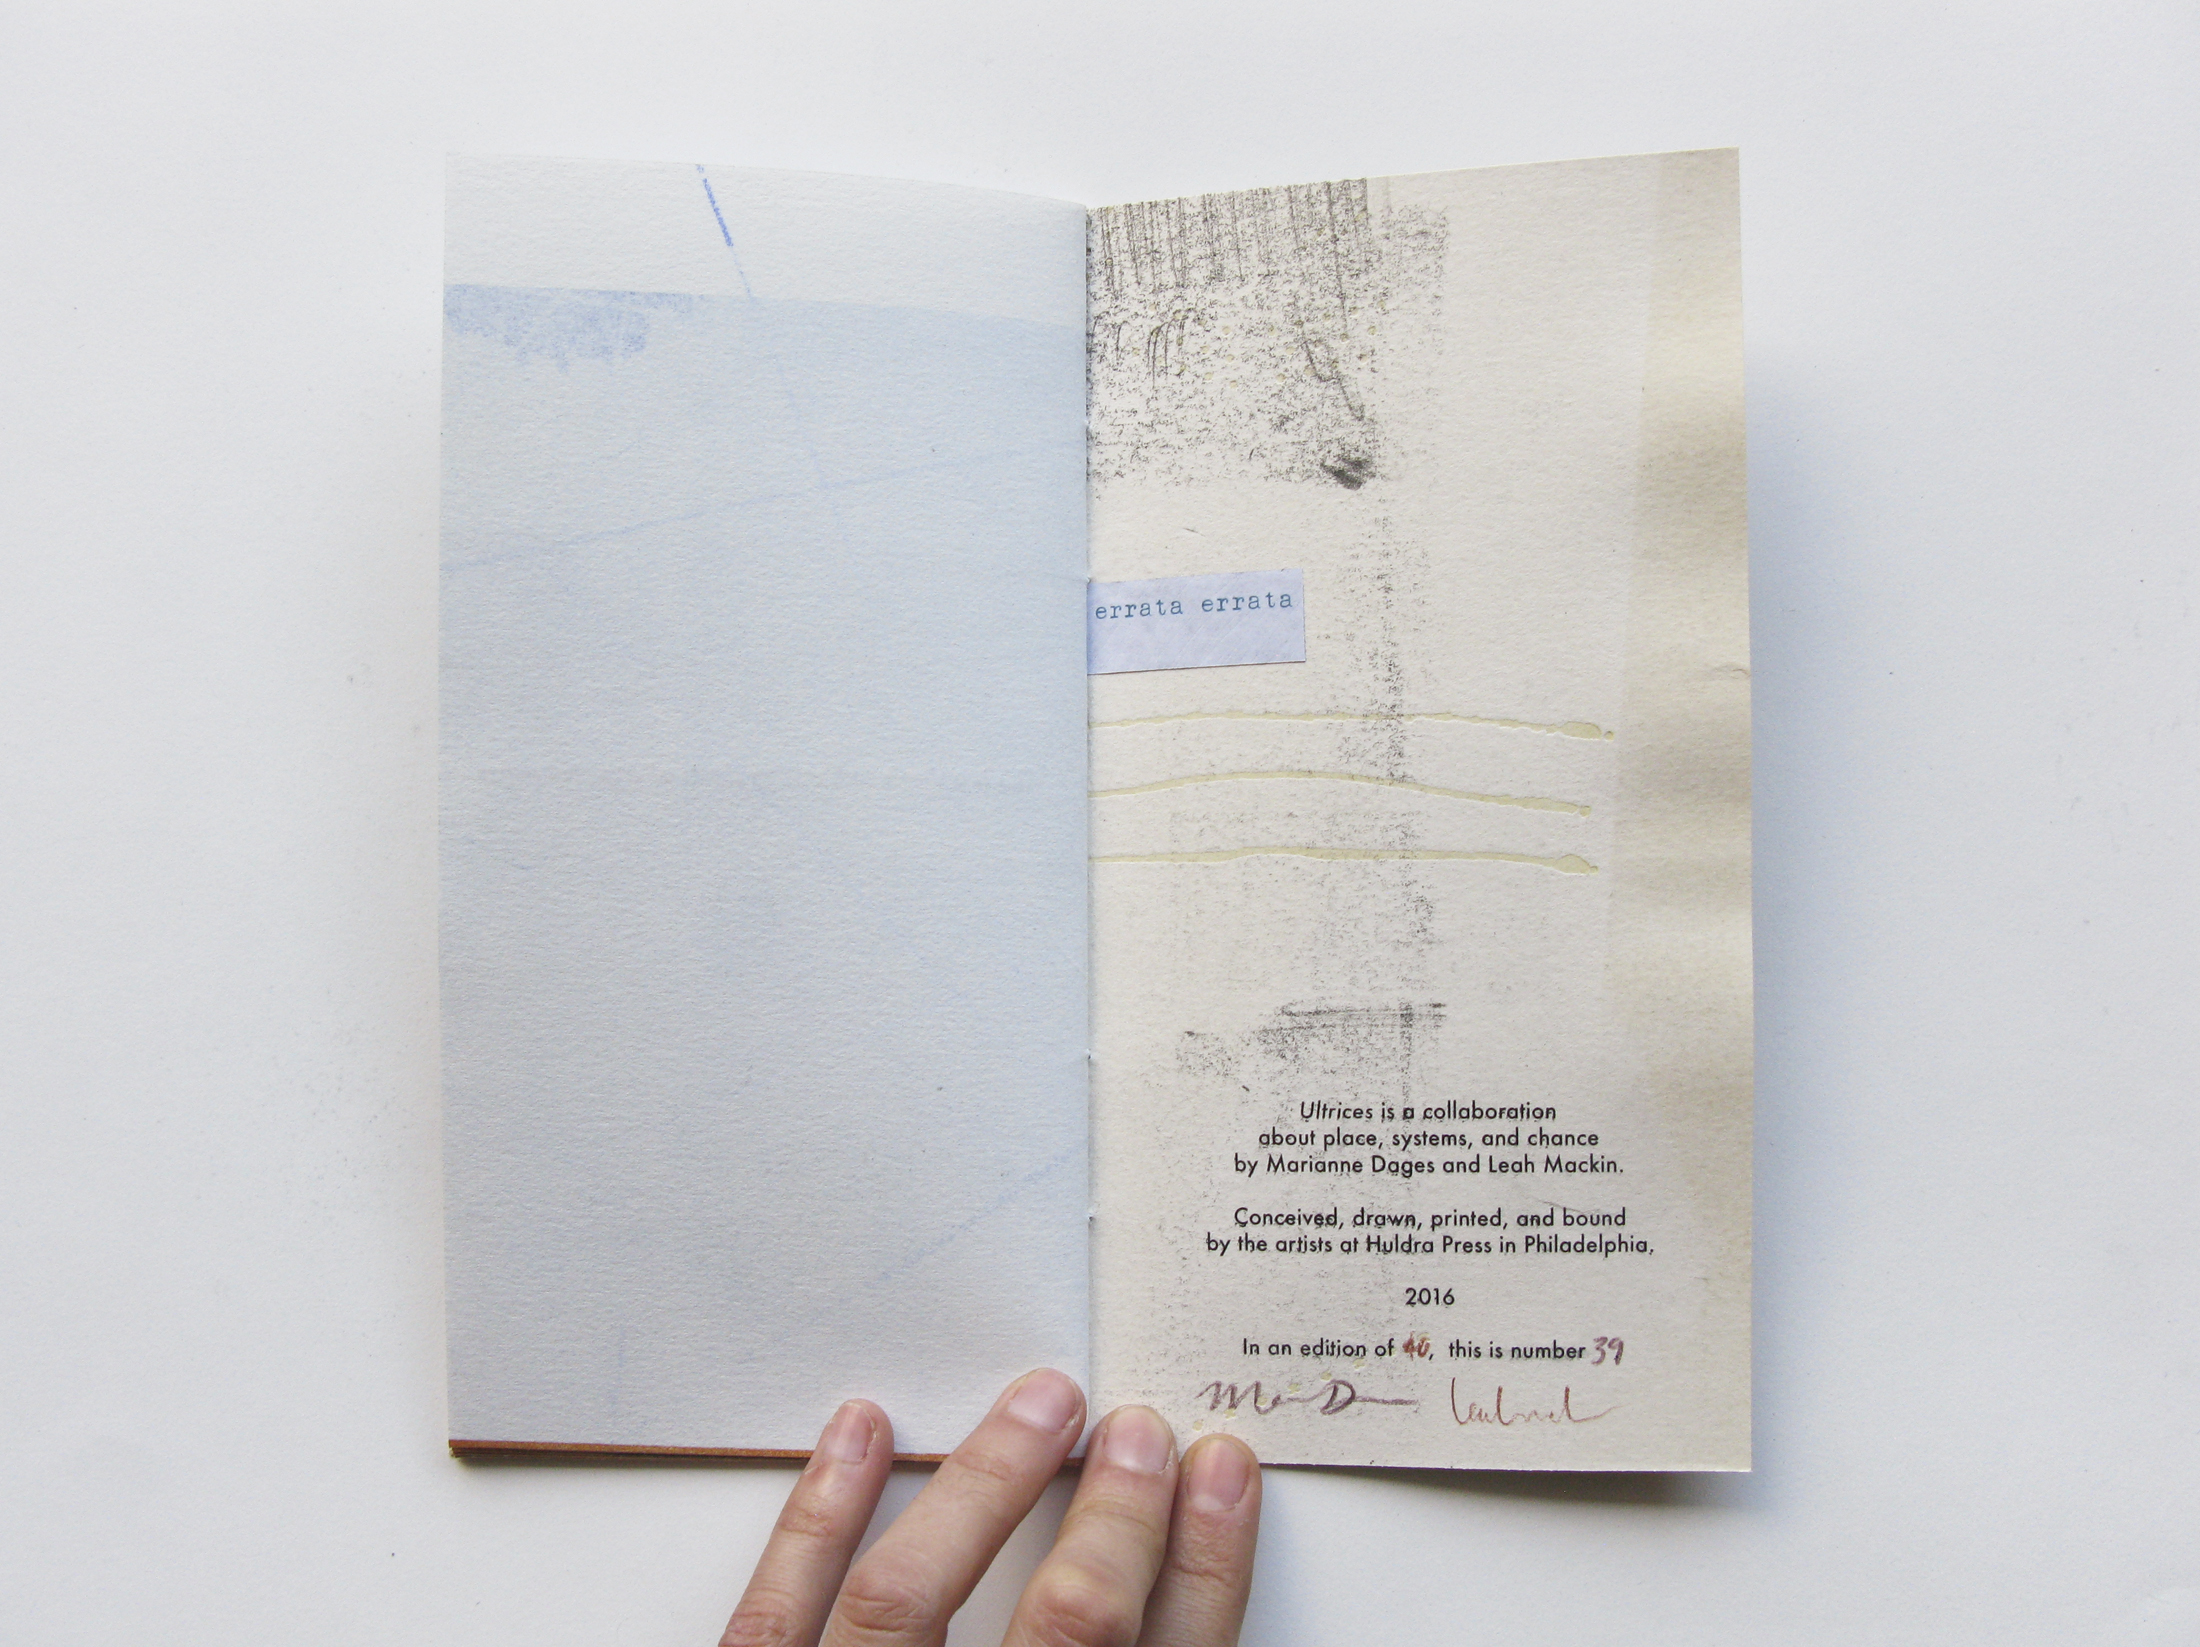 errata errata
Ultrices is a collaboration
about place, systems, and chance
by Marianne Dages and Leah Mackin.
Conceived, drawn, printed, and bound
by the artists at Huldra Press in Philadelphia,
2016
In an edition of 40, this is number 39